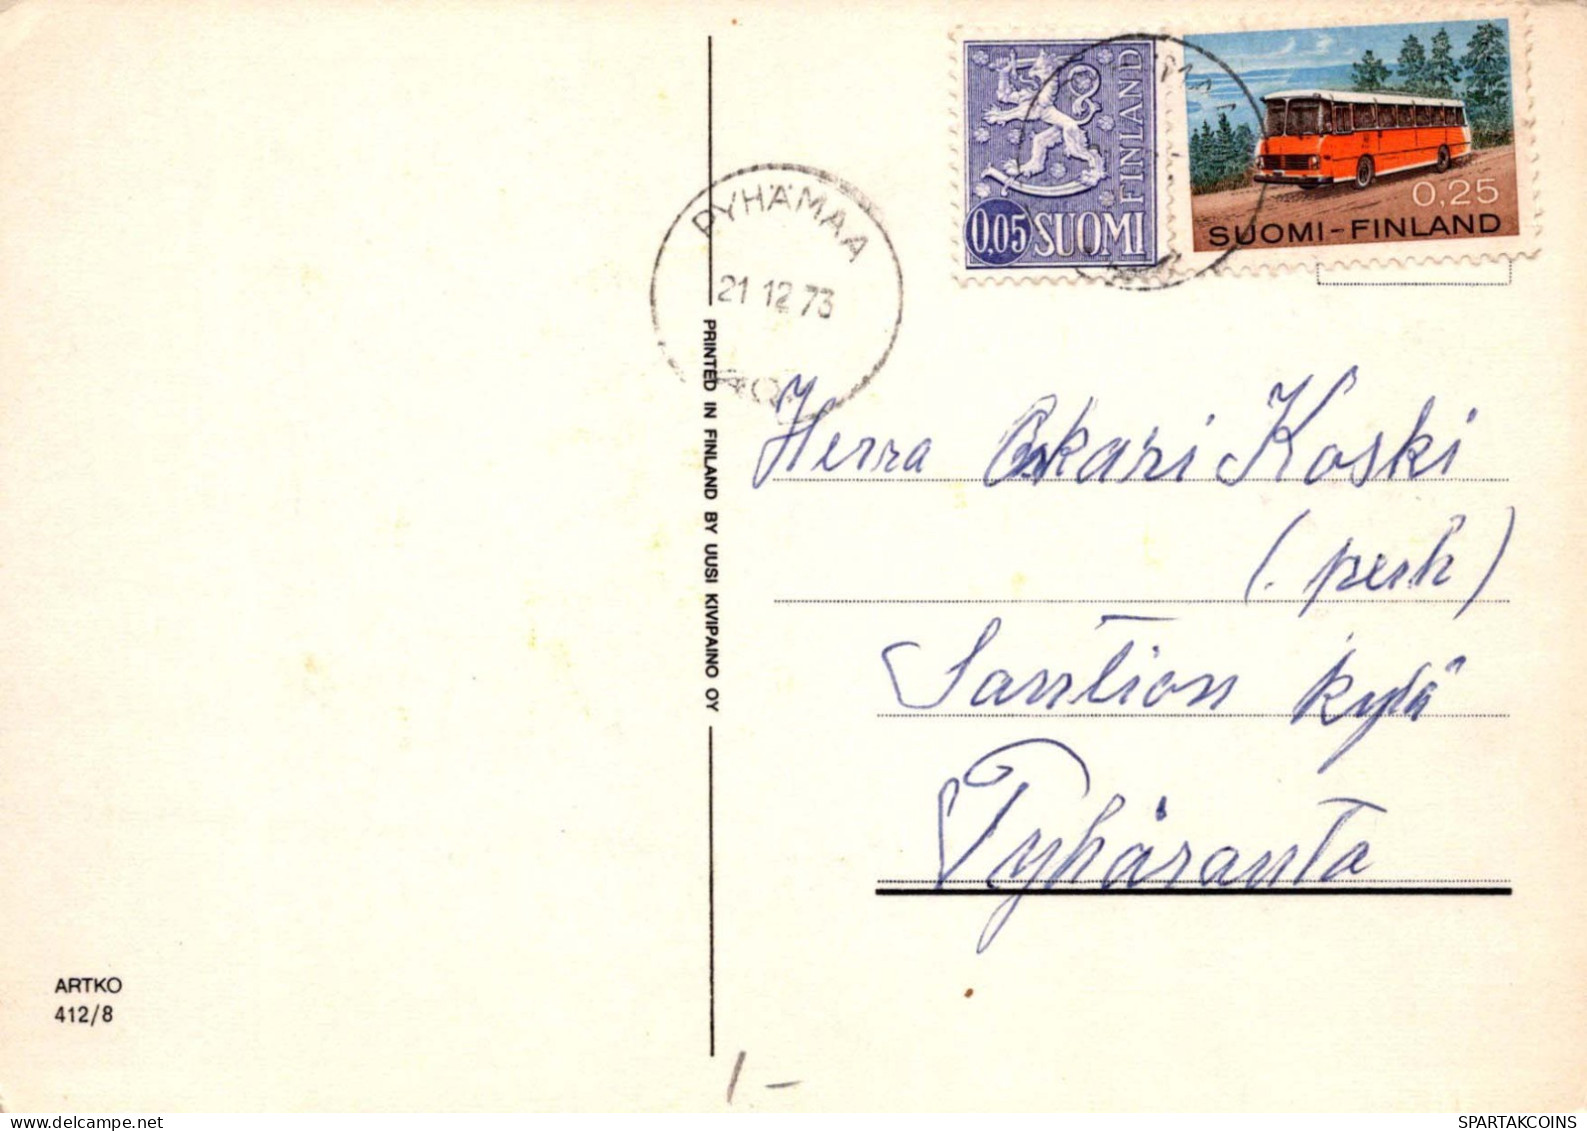 FINLAND
0,05 SUOMI
0,25
SUOMI-FINLAND
PYHÄMAA
21 12 73
PRINTED IN FINLAND BY UUSI KIVIPAINO OY
Herra Oskari Koski
(. perh)
Santtion kylä
Pyhäranta
ARTKO
412/8
1 -
SPARTAKCOINS